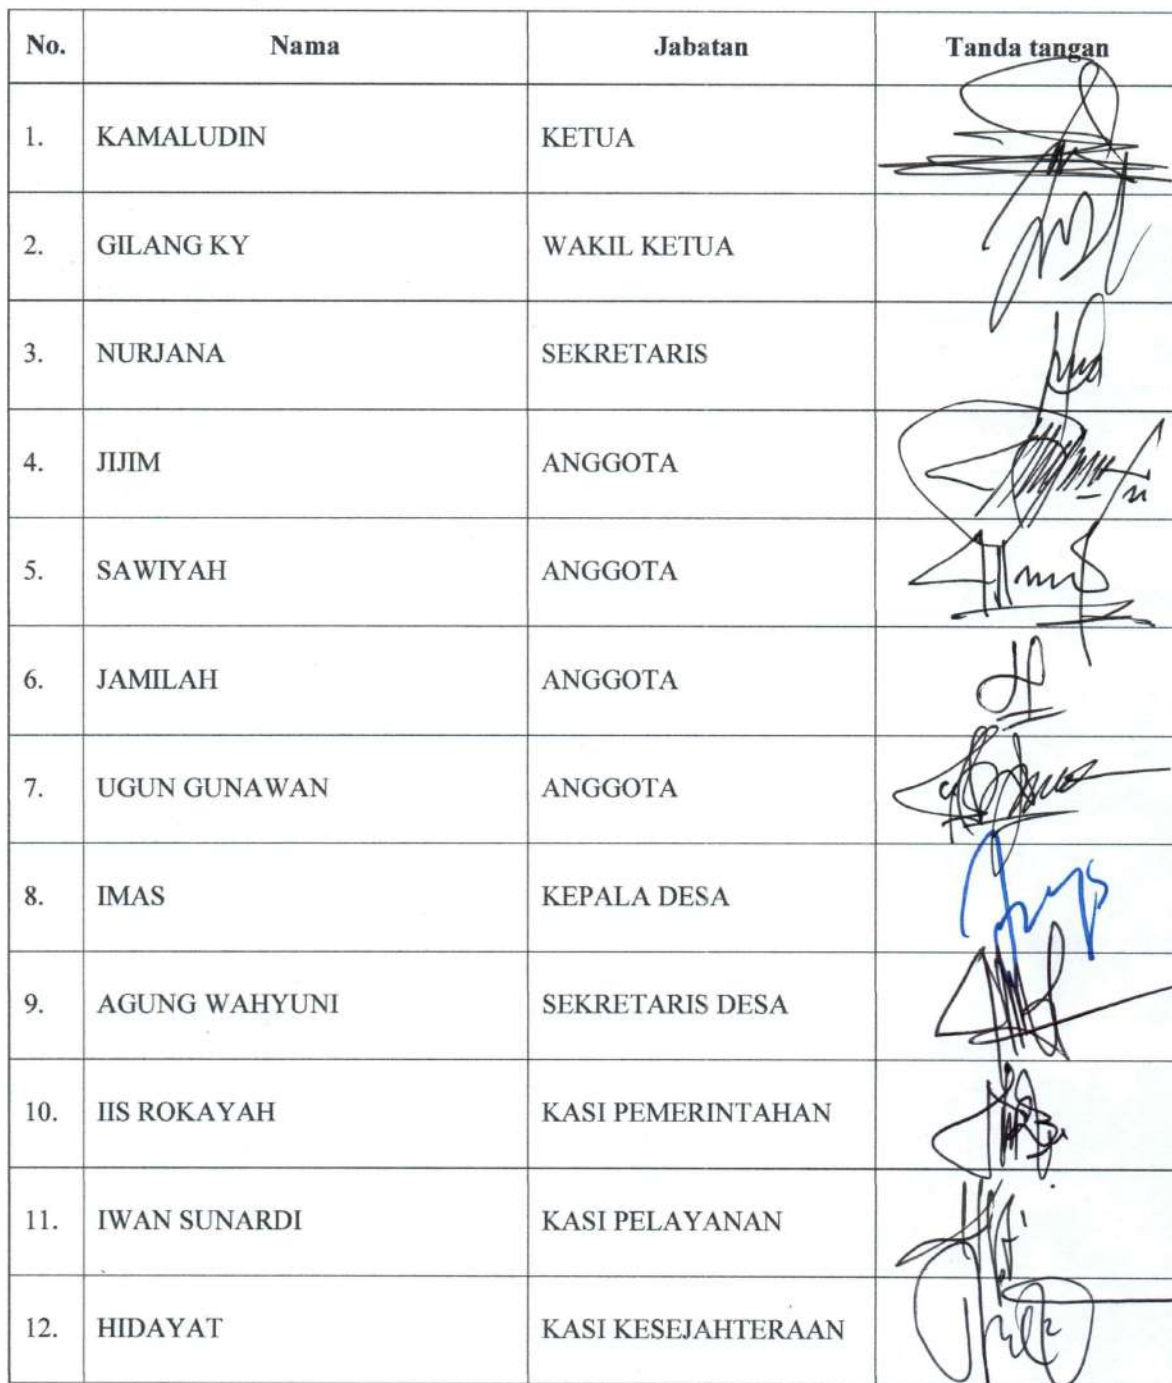 No. Nama Jabatan Tanda tangan
1. KAMALUDIN KETUA
2. GILANG KY WAKIL KETUA
3. NURJANA SEKRETARIS
4. JIJIM ANGGOTA
5. SAWIYAH ANGGOTA
6. JAMILAH ANGGOTA
7. UGUN GUNAWAN ANGGOTA
8. IMAS KEPALA DESA
9. AGUNG WAHYUNI SEKRETARIS DESA
10. IIS ROKAYAH KASI PEMERINTAHAN
11. IWAN SUNARDI KASI PELAYANAN
12. HIDAYAT KASI KESEJAHTERAAN